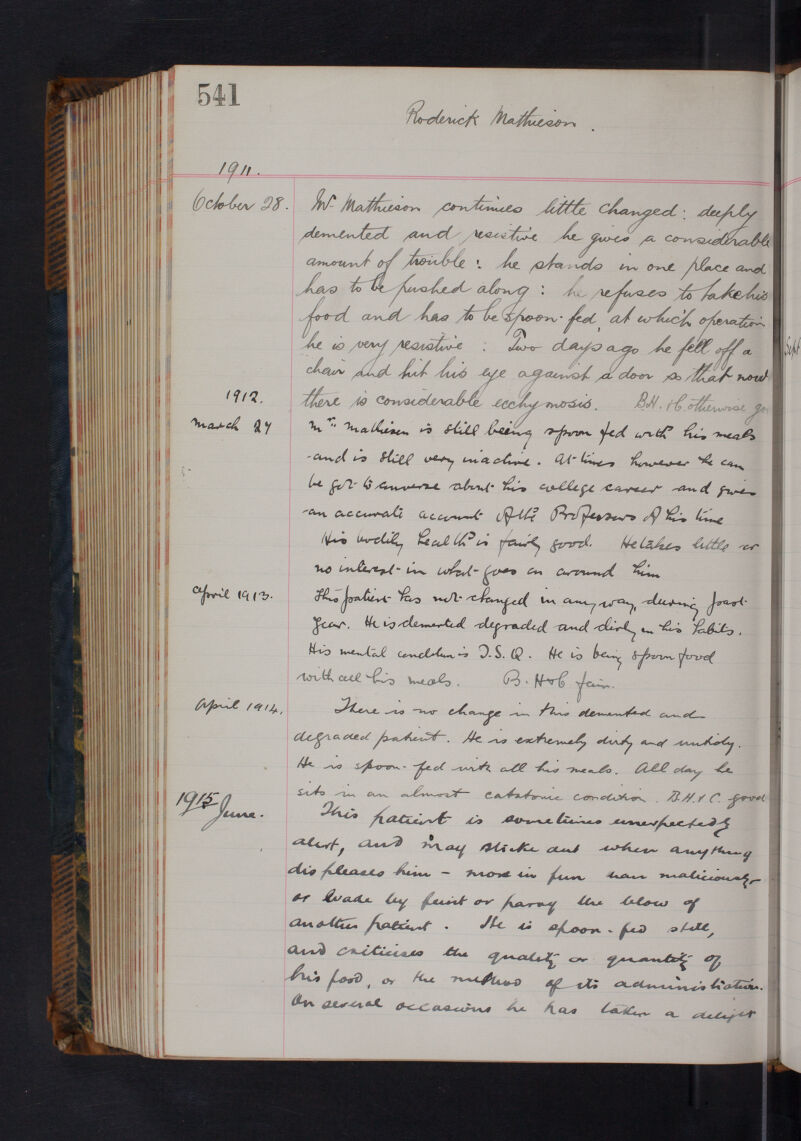 541
Roderick Mathieson.
1911.
October 28. Mr Mathieson continues little changed: deeply
demented and resistive he gives a considerable
amount of trouble: he stands in one place and
has to be pushed along: he refuses to take his
food and has to be spoon-fed, at which operation
he is very resistive: Two days ago he fell off a
chair and hit his eye against a door so that now
1912. there is considerable ecchymosis. B.H. & C. otherwise go
March 27 Mr Mathieson is still being spoon fed with his meals
and is still very inactive. At times however he can
be got to converse about his college career and gives
an accurate account of the Professors of his time
His bodily health is fairly good. He takes little or
no interest in what goes on around him
April 1913. This patient has not changed in any way during past
year. He is demented degraded and dirty in his habits.
His mental condition is I.S.Q. He is being spoon food
with all his meals. B. H & C fair.
April 1914. There is no change in this demented and
degraded patient. He is extremely dirty and untidy.
He is spoon-fed with all his meals. All day he
sits in an almost catatonic condition. B.H. & C. good
1915 June. This patient is sometimes unexpectedly
alert, and may strike out when anything
displeases him - more in fun than maliciously -
or evade by feint or parry the blow of
another patient. He is spoon-fed still,
and criticises the quality or quantity of
his food, or the method of its administration.
On several occasions he has taken a delight
Sept